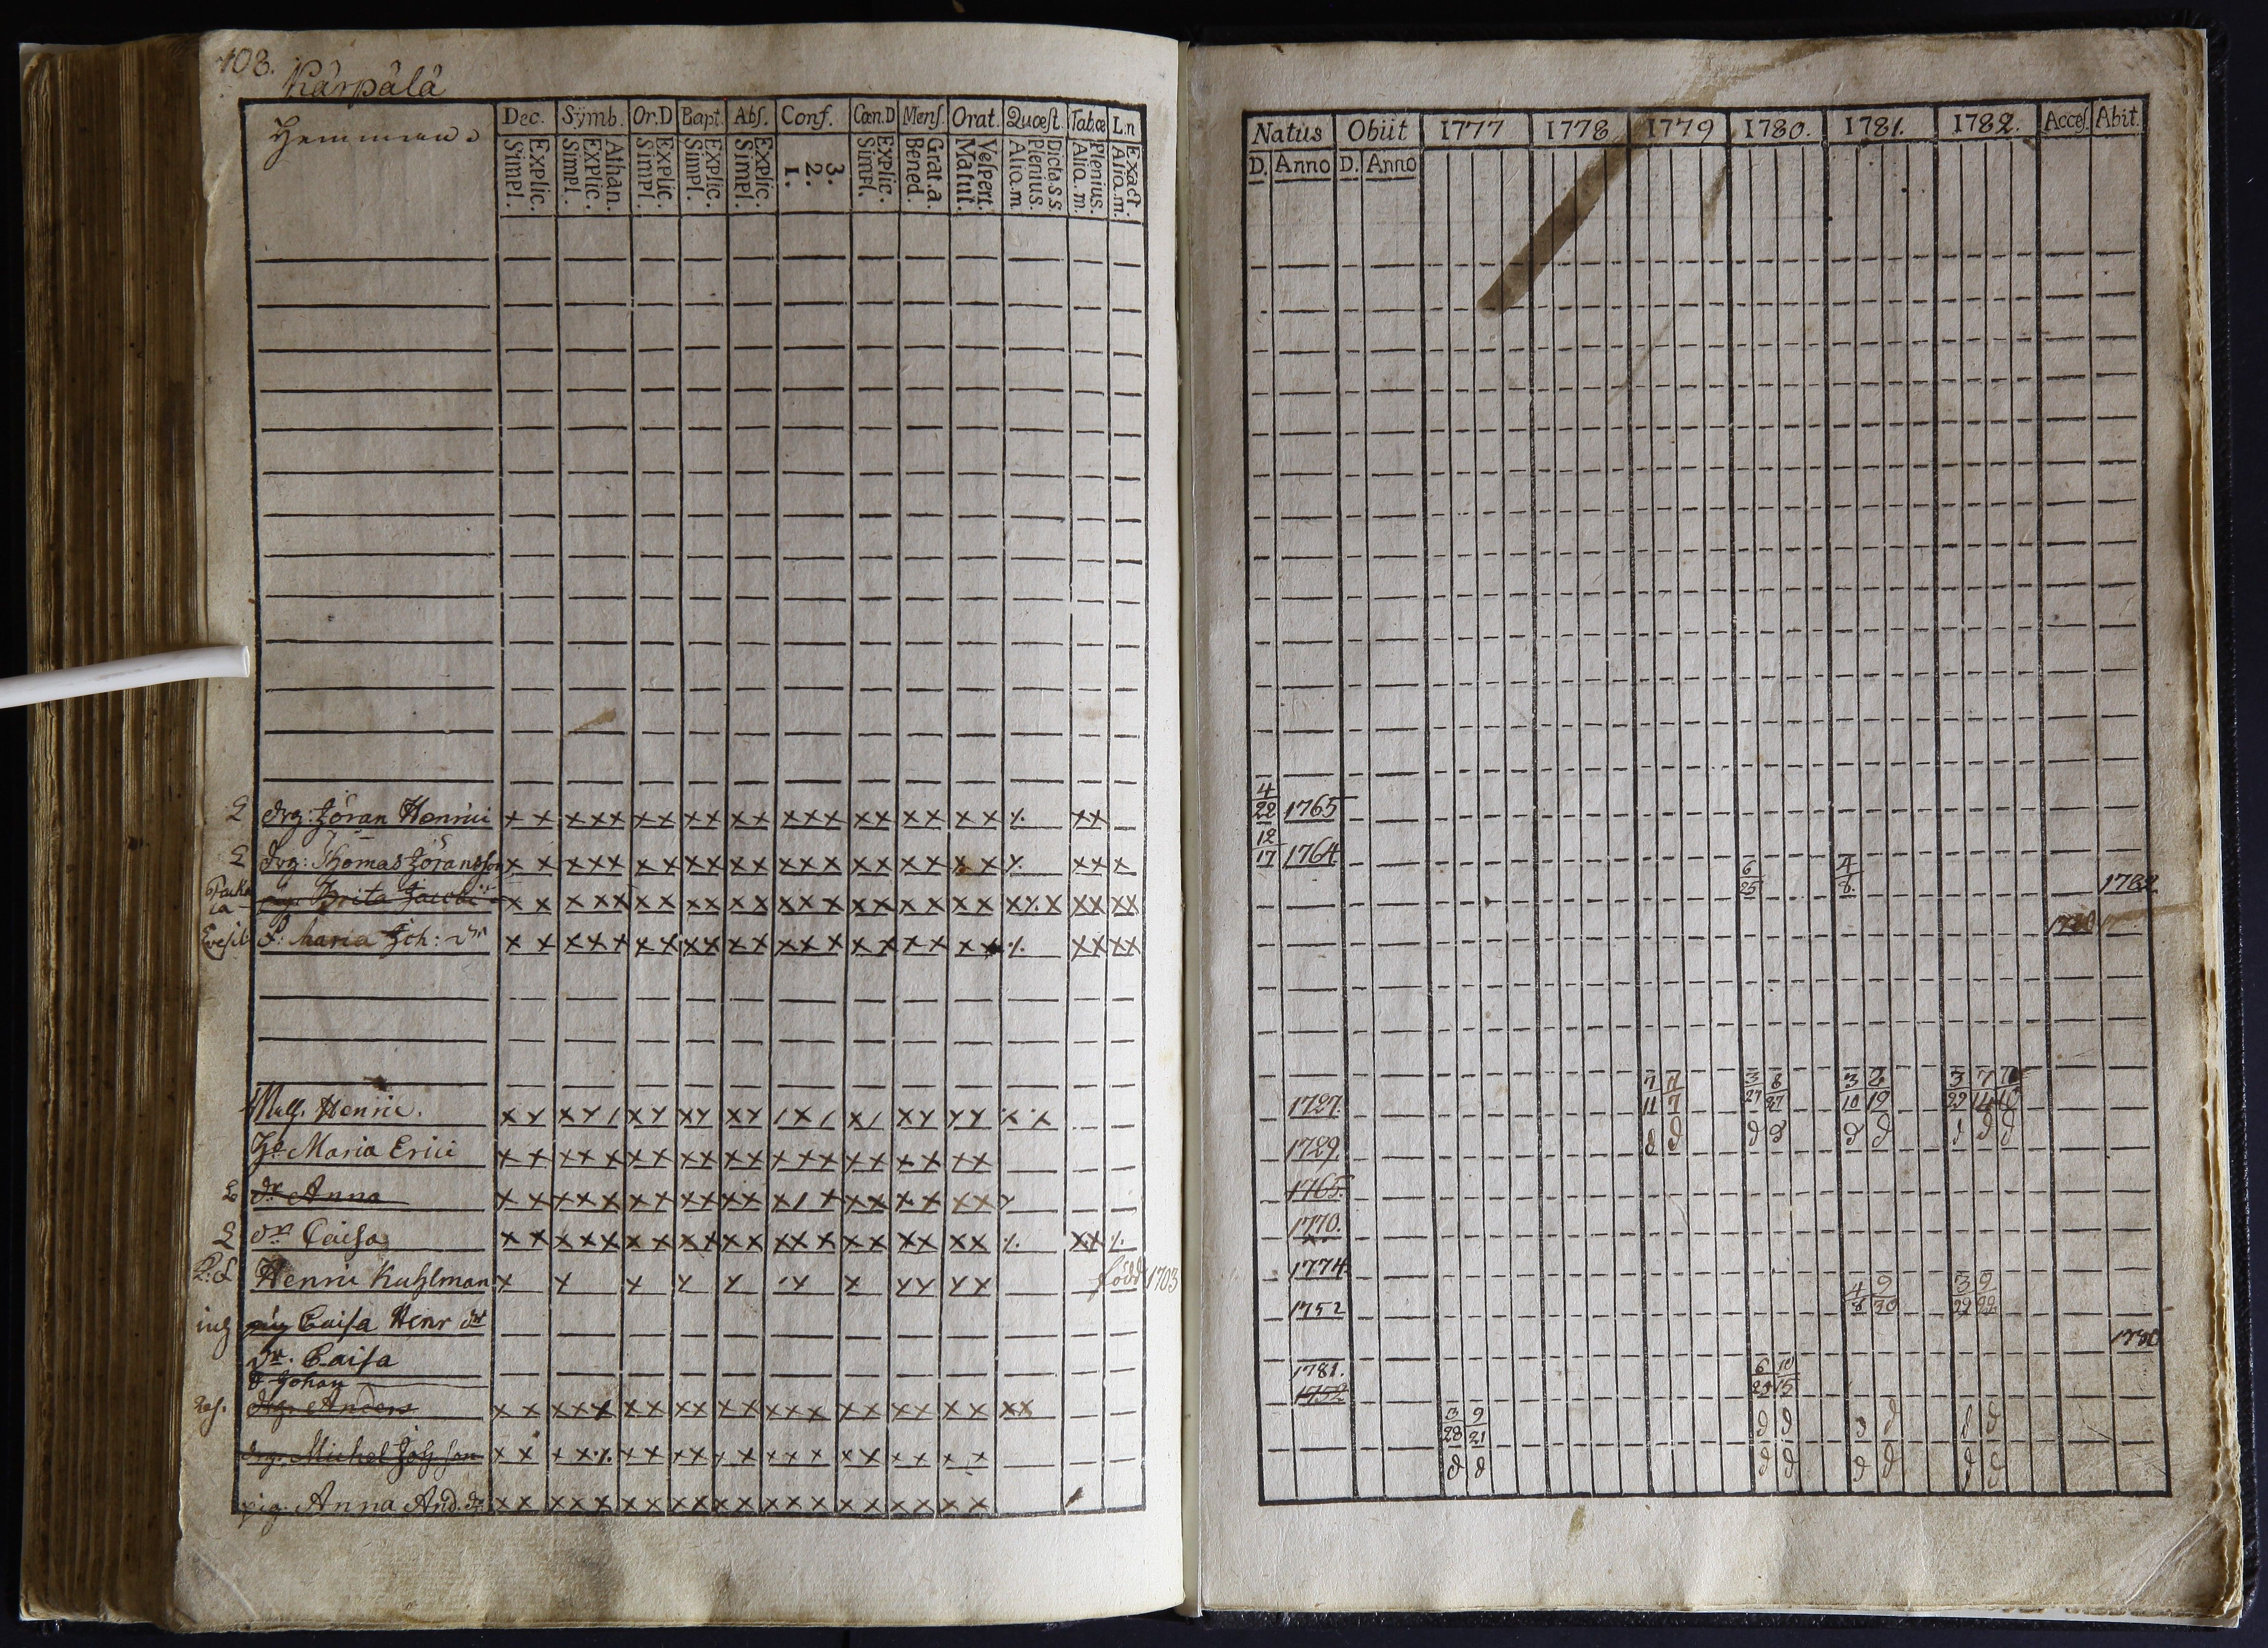 108.
Kärpälä
Hemmans
Dec. Symb. Or.D Bapt. Abs. Conf. Cœn.D Mens. Orat. Quœst. Tab.œ L.n
Explic. Simpl. Athan. Explic. Simpl. Explic. Simpl. Explic. Simpl. Explic. Simpl. 3. 2. 1. Explic. Simpl. Grat.a. Bened. Vespert. Matut. Dicta S.S. Plenius. Alio.m. Plenius. Alio.m. Exact. Alio.m.
drg: Jöran Henrici
drg: Thomas Jöransson
pig. Brita Jacobi
P. Maria Joh: dr
Matts Henric.
Ho Maria Erici
dr Anna
dr Caisa
Henric Kuhlman född 1703
pig Caisa Henr dr
dr. Caisa
d Johan
drg. Anders
drg. Michel Joh son
pig. Anna And. dr
Natus Obiit 1777 1778 1779 1780. 1781. 1782. Acces. Abit.
D. Anno D. Anno
4/22 1765
12/17 1764
6/25 4/8. 1782
1780
1727. 7/11 7/7 3/27 8/27 3/10 2/19 3/29 7/14
1729. d d d d d d d d d
1765.
1770.
1774.
1752 4/8 9/30 3/29 9/22
1780
1781. 6/29 10/15
1752
3/28 9/21 d d d d d d
d d d d d d d d